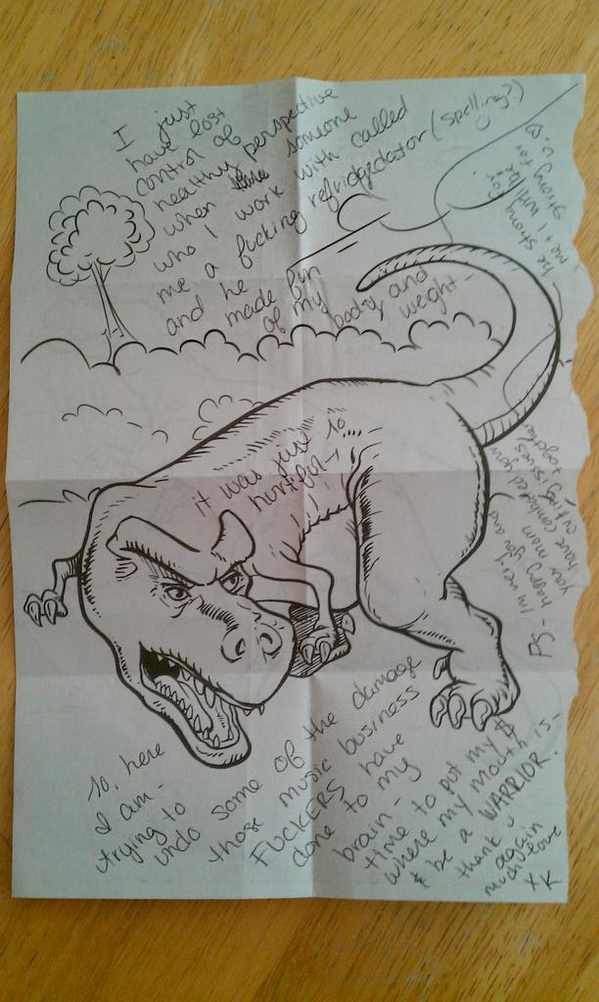 I just
have lost
control of
healthy perspective
when someone
who I work with called
me a fucking refridgedator (spelling?)
and he made fun
of my body and
weight-
it was just so
hurtful-
so, here
I am-
trying to
undo some of the damage
those music business
FUCKERS have
done to my
brain-
time to put my $
where my mouth is-
& be a WARRIOR.
thank u
again
much love
xK
PS- I'm very
happy you and
your mom
have combated your
cutting issues
together
be strong for
me & I will be
strong for
u.